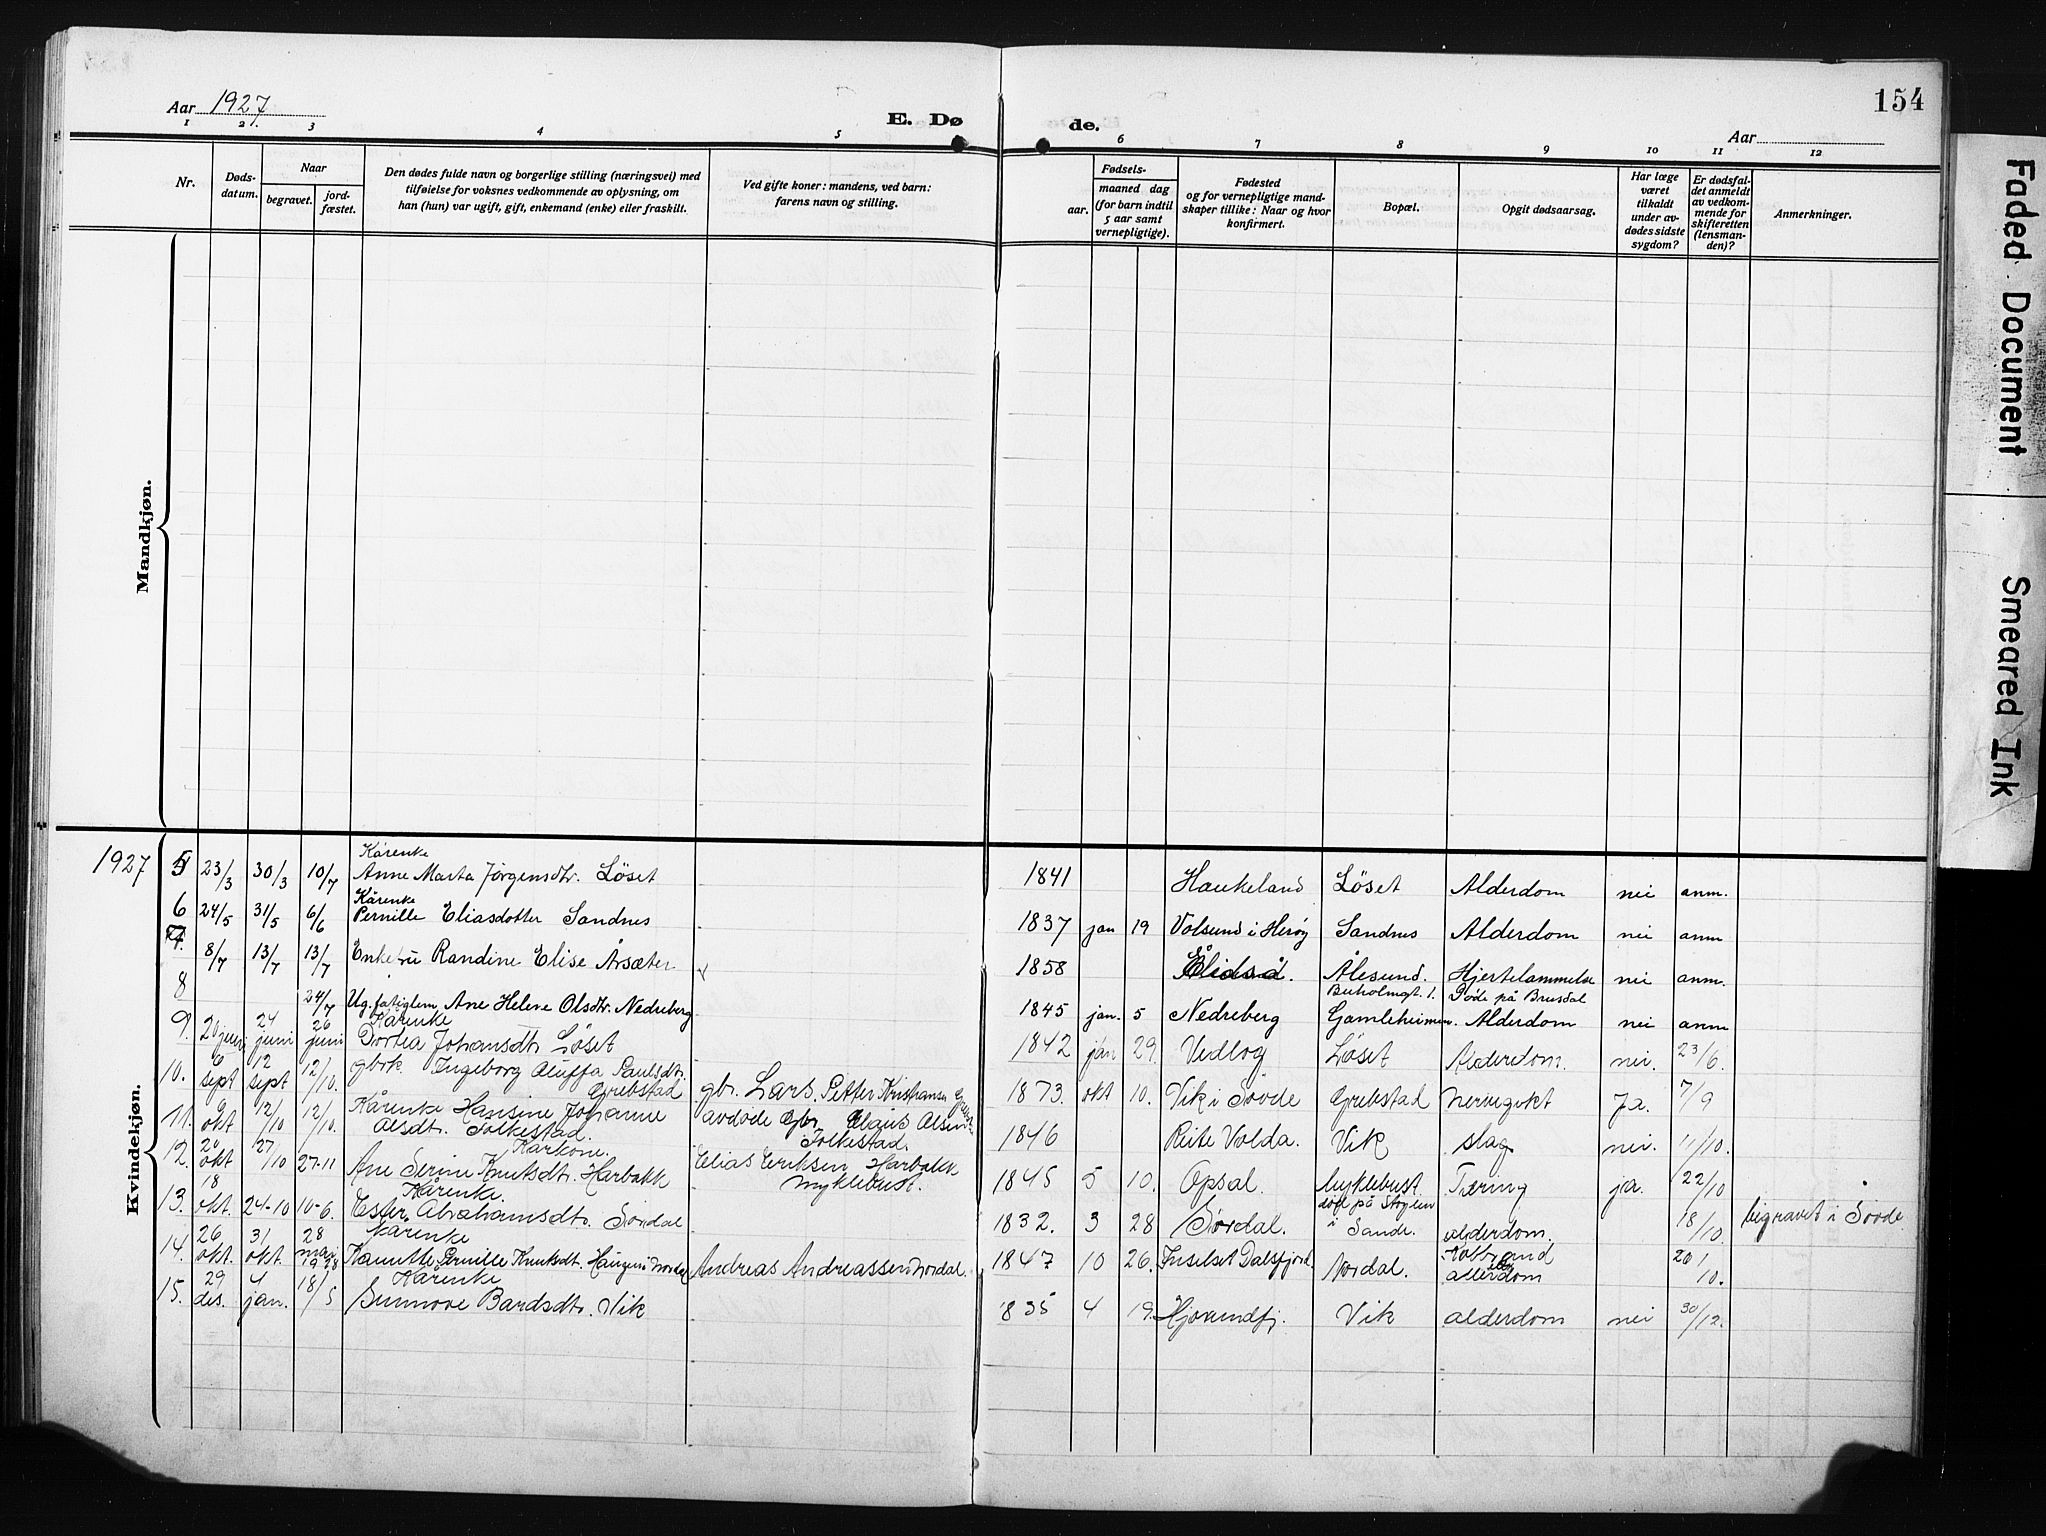 154
Aar 1927
E. Dø
de.
Aar
1 2. 3 4 5 6 7 8 9 10 11 12
Nr.
Døds-
datum.
Naar
begravet.
jord-
fæstet.
Den dødes fulde navn og borgerlige stilling (næringsvei) med
tilføielse for voksnes vedkommende av oplysning, om
han (hun) var ugift, gift, enkemand (enke) eller fraskilt.
Ved gifte koner: mandens, ved barn:
farens navn og stilling.
Fødsels-
aar.
maaned dag
(for barn indtil
5 aar samt
vernepligtige).
Fødested
og for vernepligtige mand-
skaper tillike: Naar og hvor
konfirmert.
Bopæl.
Opgit dødsaarsag.
Har læge
været
tilkaldt
under av-
dødes sidste
sygdom?
Er dødsfal-
det anmeldt
av vedkom-
mende for
skifteretten
(lensman-
den)?
Anmerkninger.
Mandkjøn.
Kvindekjøn.
1927
Kårenke
5 23/3 30/3 10/7 Anne Marta Jørgensdtr. Løset 1841 Haukeland Løset Alderdom nei anm.
Kårenke
6 24/5 31/5 6/6 Pernille Eliasdotter Sandnes 1837 jan 19 Volsund i Herøy Sandnes Alderdom nei anm
7. 8/7 13/7 13/7 Randine Elise Årsæter 1858 Ålesund. Hjertelammelse nei anm.
Buholmgt. 1. Døde på Brusdal
8 24/7 Ug. fatiglem Ane Helene Olsdtr. Nedreberg 1845 jan. 5 Nedreberg Gamleheimen. Alderdom nei anm
Kårenke
9. 20 juni 24 juni 26 juni Dortea Johansdtr Løset 1842 jan 29. Vedlog Løset Alderdom. nei. 23/6.
10. 6 sept 12 sept 12/10. gbrk. Ingeborg Oluffa Paulsdtr. Grebstad gbr. Lars Petter Kristiansen 1873. okt 10. Vik i Søvde Grebstad Ja. 7/9
11. 9 okt 12/10 12/10. Kårenke Hansine Johanne
Olsdt. Folkestad. avdøde Gbr. Olaus Olsen
Folkestad. 1846 Reite Volda. Vik slag nei. 11/10.
Karkone.
12. 20 okt 27/10 27-11 Ane Serine Knutsdt. Harbakk Elias Eriksen Harbakk
Myklebust. 1845 5 10. Opsal. Myklebust Tæring ja. 22/10
Kårenke.
13. 18 okt. 24-10 10-6. Ester Abrahamsdt. Sørdal 1832. 3 28 Sørdal. døde på
i Sande. alderdom. 18/10. begravet i Søvde
Kårenke
14. 26 okt. 31 okt. 28 mai 1928 Pernille Knutsdt. Andreas Andreassen Nordal. 1847 10 26. Dalsfjord. Nordal. alderdom 20/10.
Kårenke
15. 29 des. 4 jan. 18/5 Sunnove Bardsdt. Vik 1835 4 19. Hjørundfj. Vik alderdom nei 30/12.
Faded Document
Smeared Ink